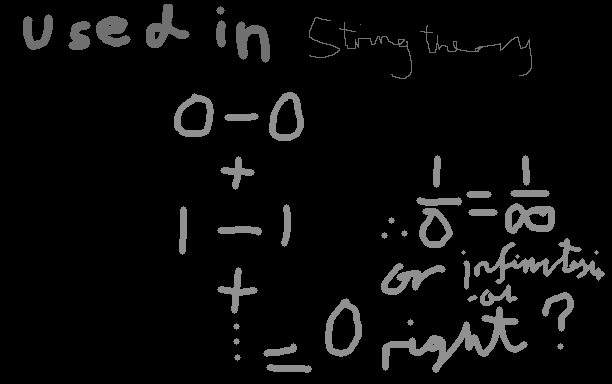 used in String theory
0 - 0
+
1 - 1
+
⋮ = 0
∴ 1/0 = 1/∞
or infinitesimal
right?